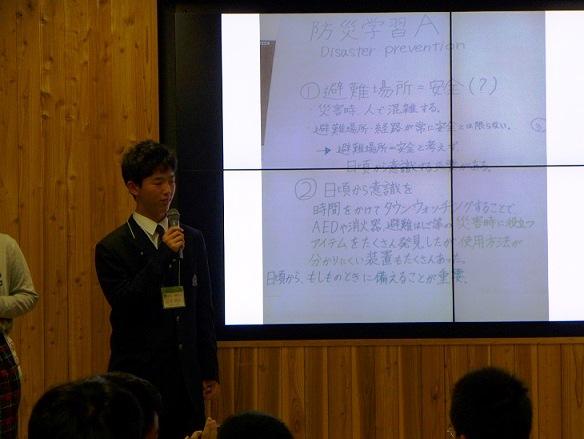 防災学習A
Disaster prevention
①避難場所=安全(?)
・災害時、人で混雑する。
・避難場所・経路が常に安全とは限らない。
→避難場所=安全と考えず
日頃から意識する必要がある。
②日頃から意識を
時間をかけてタウンウォッチングすることで
AEDや消火器、避難はしご等の災害時に役立つ
アイテムをたくさん発見したが、使用方法が
分かりにくい装置もたくさんあった。
日頃から、もしものときに備えることが重要。